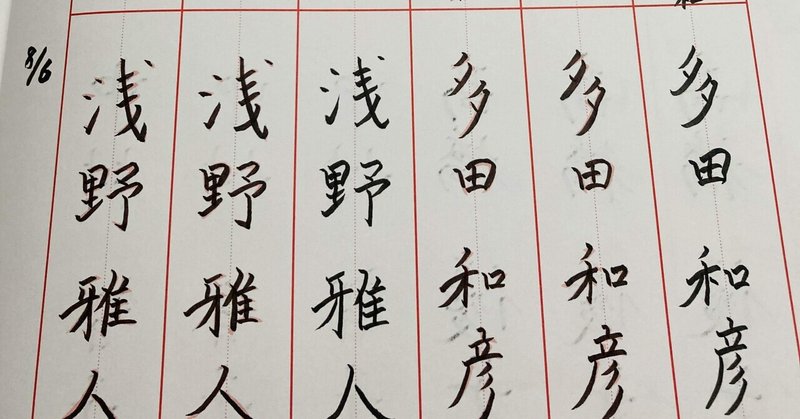 多田和彦
多田和彦
多田和彦
浅野雅人
浅野雅人
浅野雅人
8/6